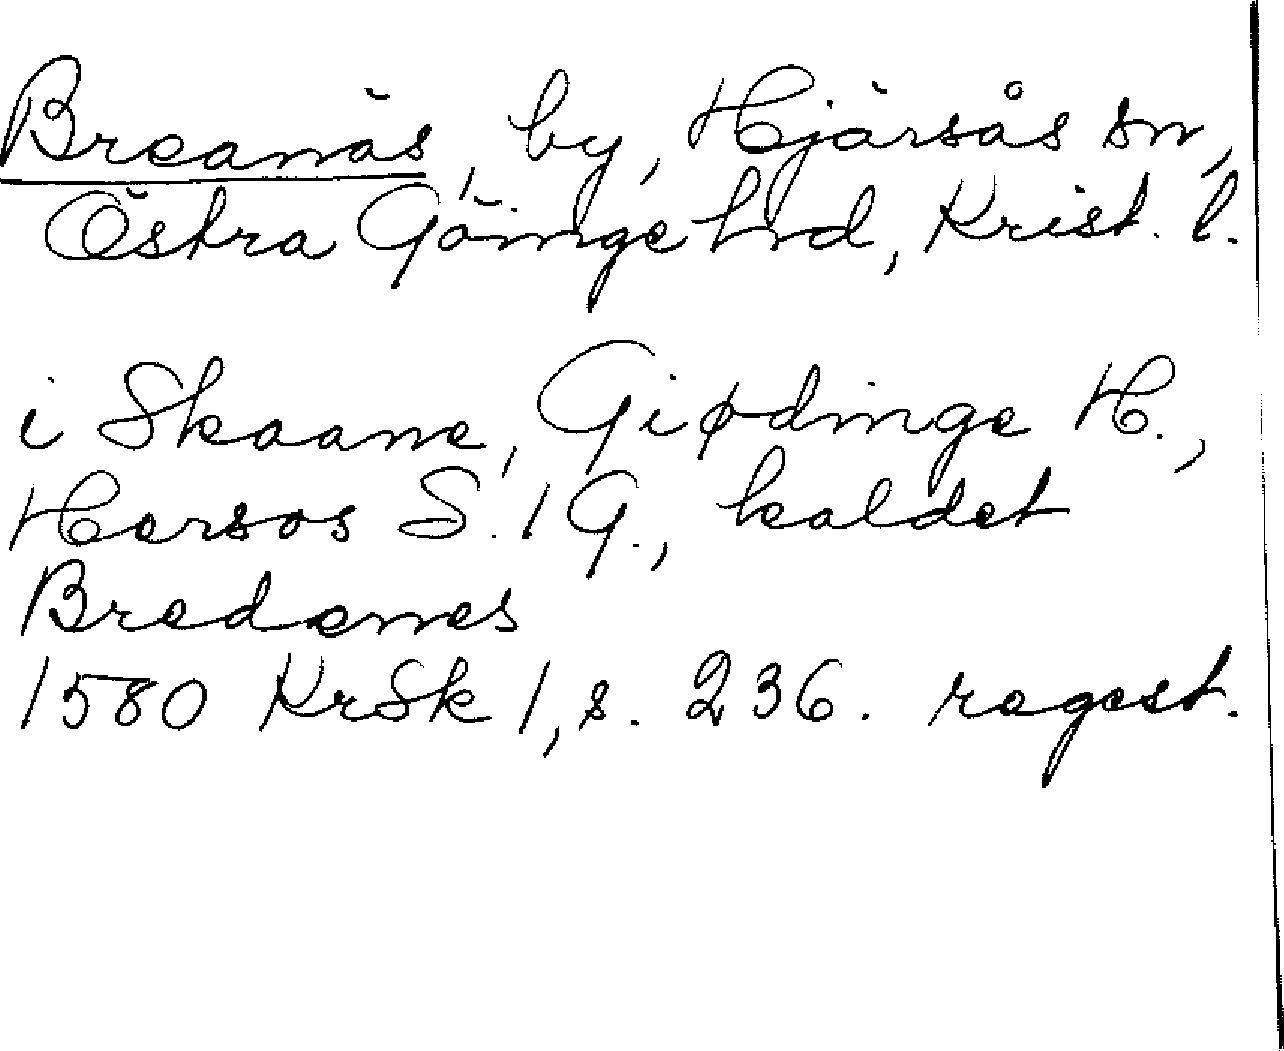 Breanäs, by, Hjärsås sn,
Östra Göinge hrd, Krist. l.
i Skaane, Giødinge H.,
Hersos S. 1 G., kaldet
Bredenes
1580 KrSk 1, s. 236. regest.